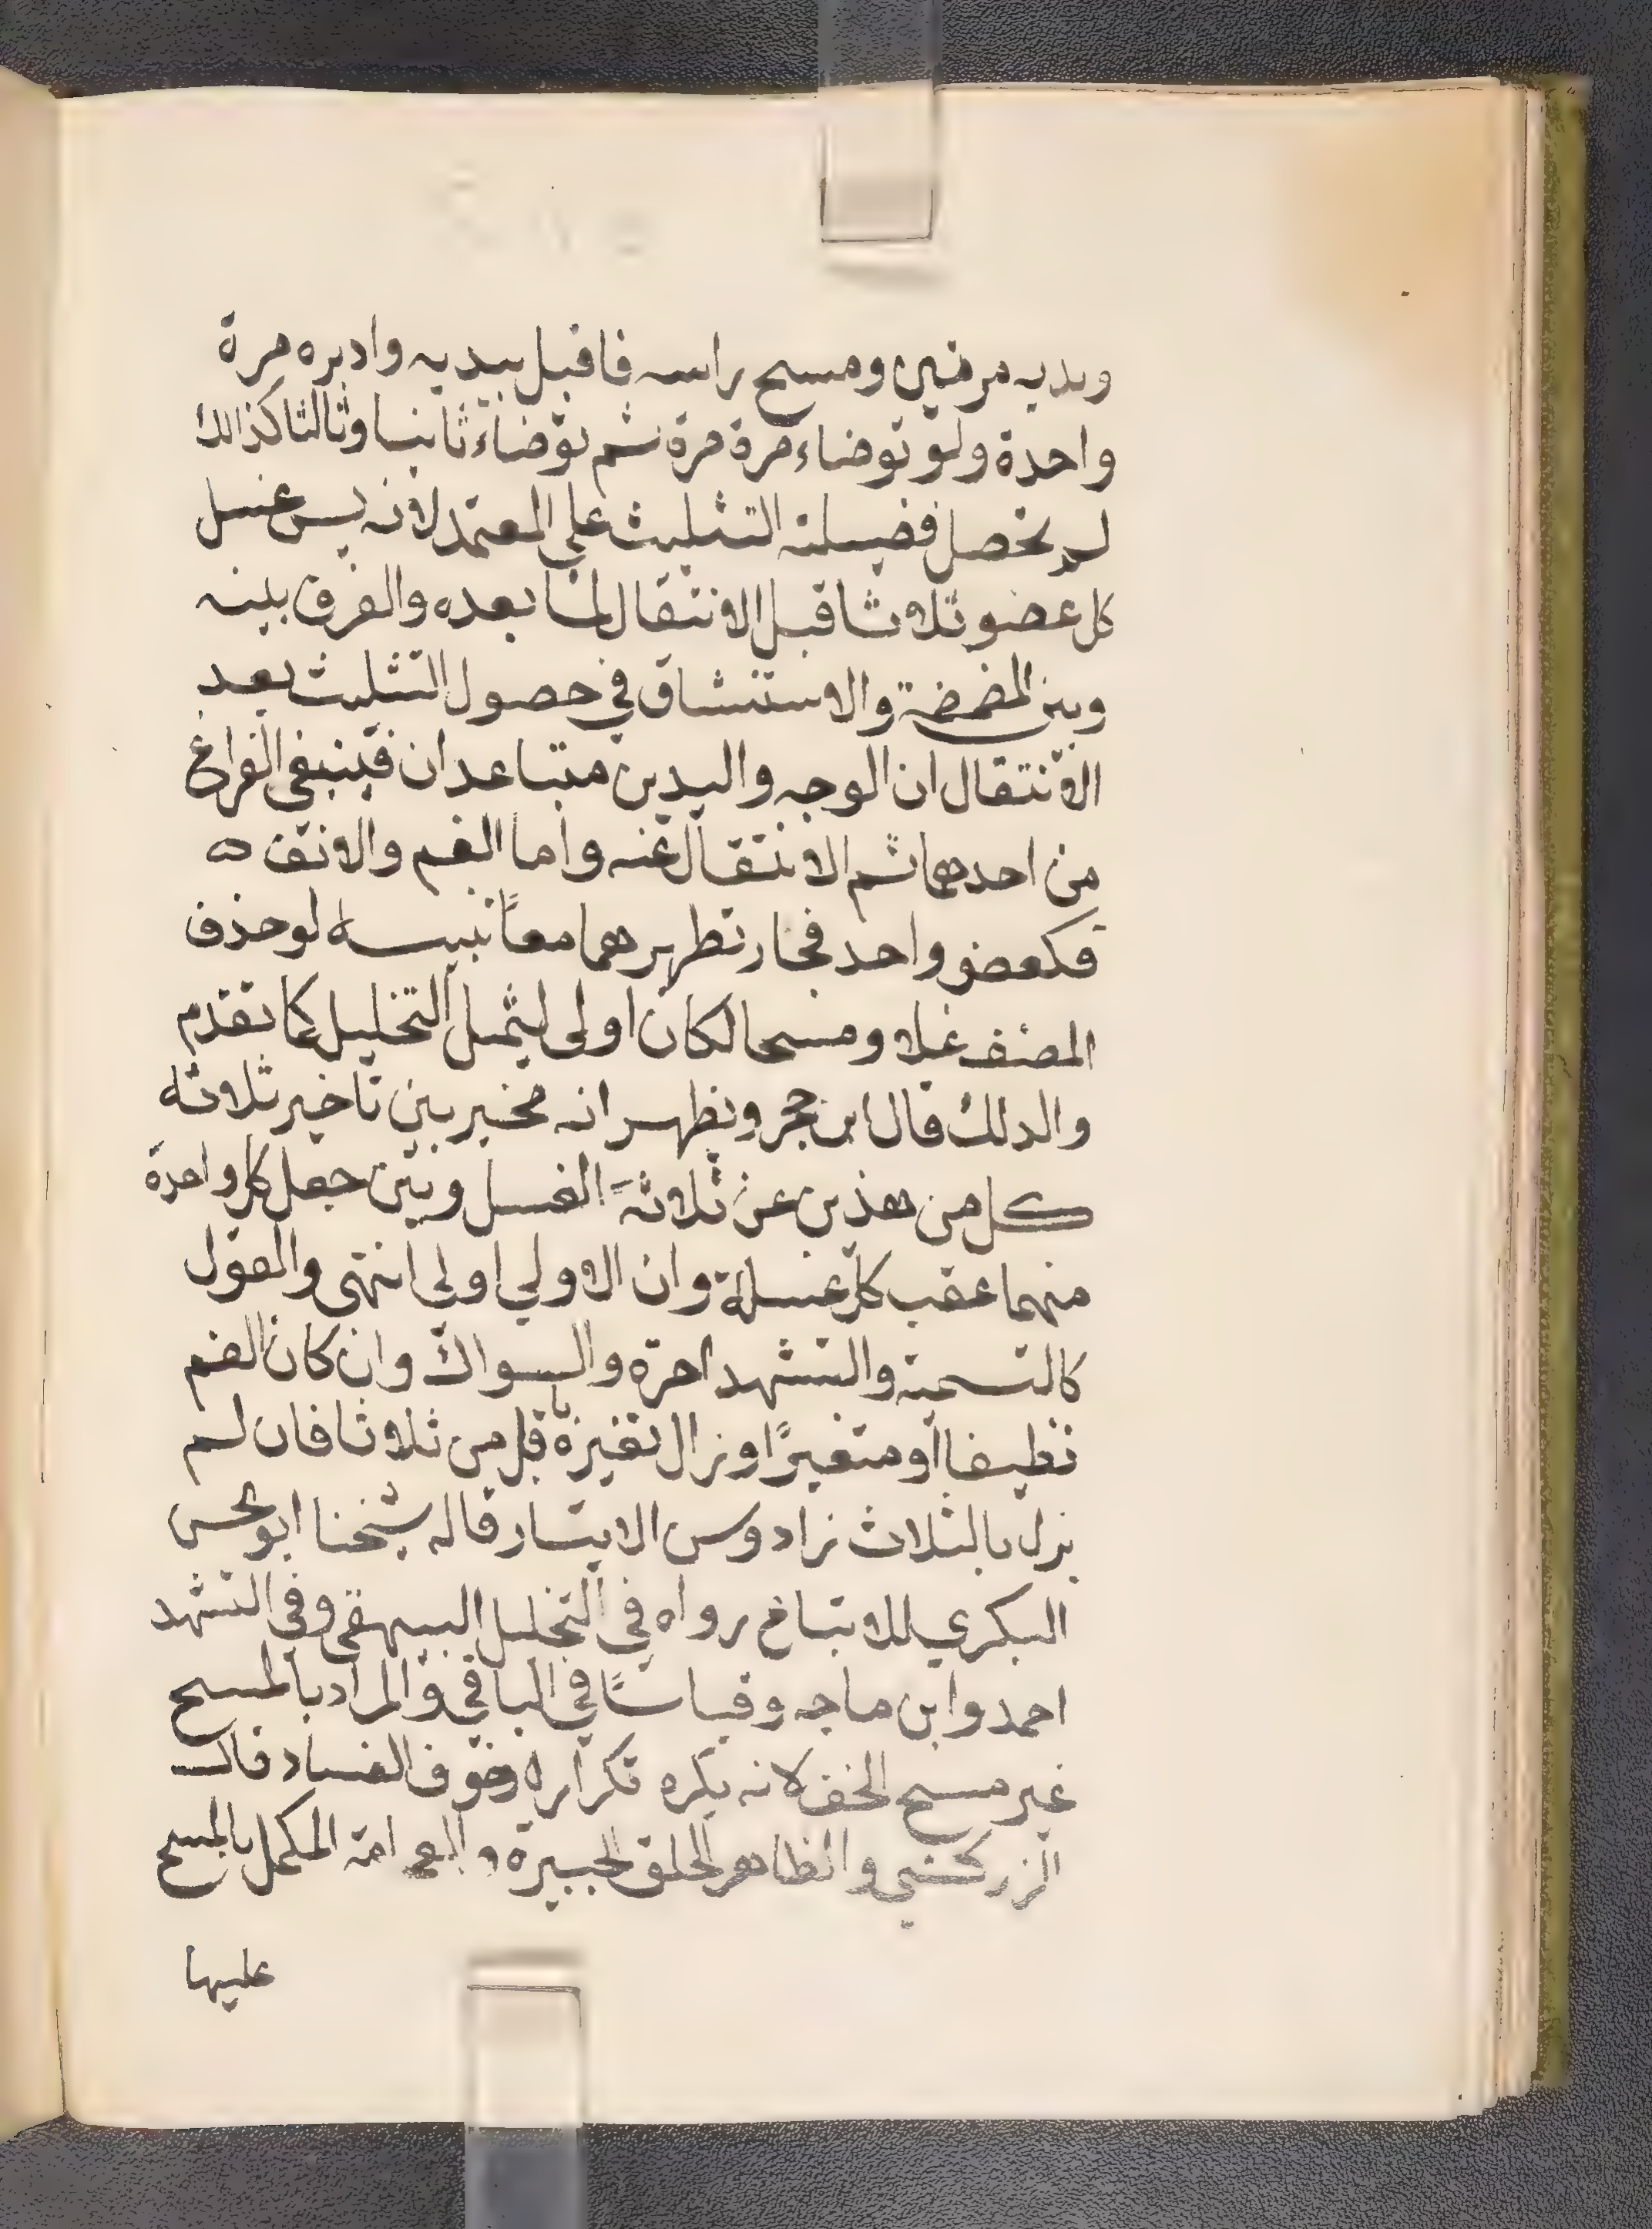 ويديه مرتين ومسح راسه فاقبل بيديه وادبره مرة
واحدة ولو توضاء مرة مرة ثم توضاء ثانيا وثالثا كذالك
لم تحصل فضيلة التثليث علي المعتمد لانه يسن غسل
كل عضو ثلاثا قبل الانتقال لما بعده والفرق بينه
وبين المضمضة والاستنشاق في حصول التثليث بعد
الانتقال ان الوجه واليدين متباعدان فينبغي الفراغ
من احدهما ثم الانتقال عنه واما الفم والانف ه
فكعضو واحد فجاز تطهيرهما معاً تنبيه لو حذف
المصنف غسلا ومسحا لكان اولى ليشمل التخليل كما تقدم
والدلك قال ابن حجر ويظهر انه مخير بين تاخير ثلاثة
كل من هذين عن ثلاثة الغسل وبين جعل كل واحدة
منهما عقب كل غسلة وان الاولي اولي انتهى والقول
كالتسمية والتشهد اخره والسواك وان كان الفم
نظيفا أو متغيرًا وزال تغيره باقل من ثلاث فان لم
يزل بالثلاث زاد وسن الايتار قاله شيخنا ابو الحسن
البكري للاتباع رواه في التخليل البيهقي وفي التشهد
احمد وابن ماجه وقياسًا في الباقي والمراد بالمسح
غير مسح الخف لانه يكره تكراره خوف الفساد قال
الزركشي والظاهر الحاق الجبيرة والعمامة المكمل بالمسح
عليها